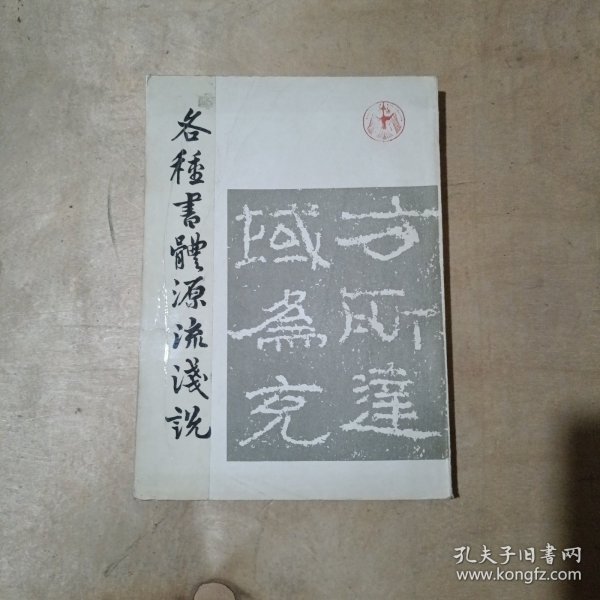 各種書體源流淺說
方所達
域為兖
孔夫子旧书网
www.kongfz.com